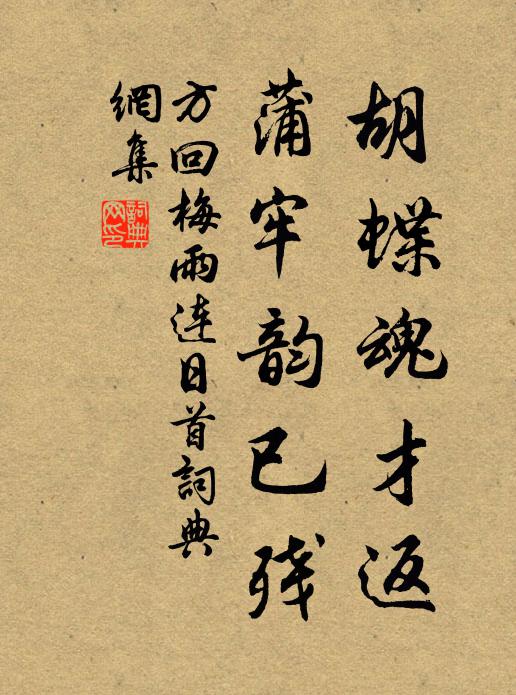 胡蝶魂才返
蒲牢韵已残
方回梅雨连日首詞典
網集
詞典
网印